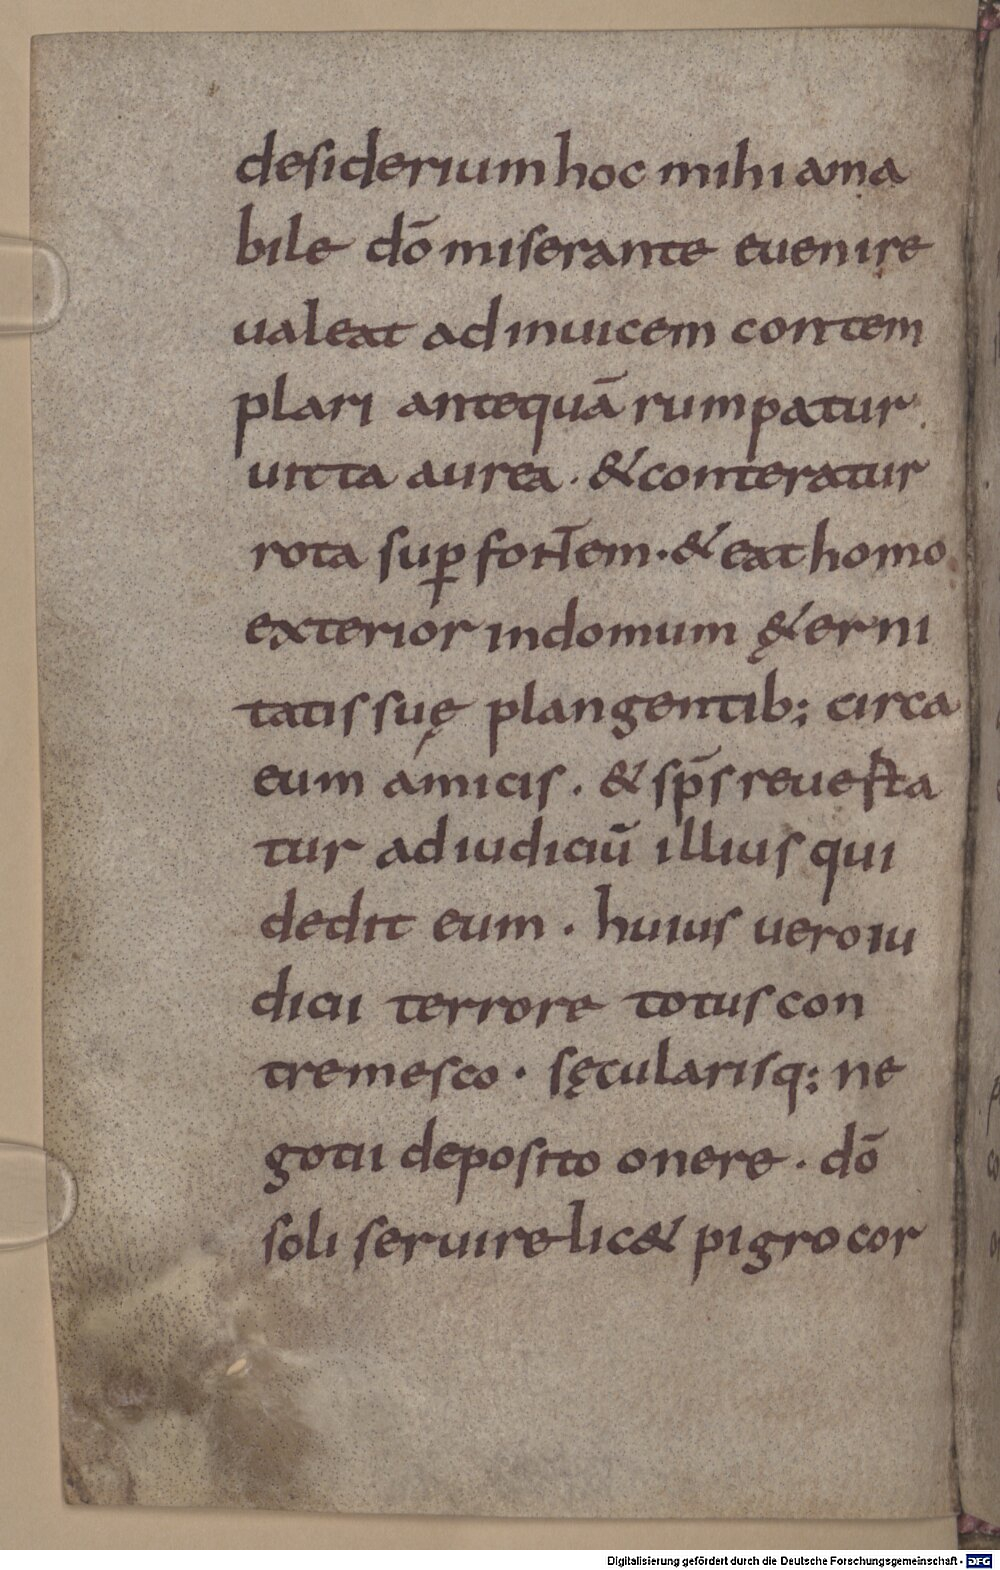 desiderium hoc mihi ama
bile dō miserante euenire
ualeat ad inuicem contem
plari antequā rumpatur
uitta aurea · & conteratur
rota suꝑ fontem · & eat homo
exterior in domum ę&erni
tatis suę plangentib; circa
eum amicis · & sp̄s reuerta
tur ad iudiciū illius qui
dedit eum · huius uero iu
dicii terrore totus con
tremesco · sęcularisq; ne
gotii deposito onere · dō
soli seruire lic& pigro cor
Digitalisierung gefördert durch die Deutsche Forschungsgemeinschaft - DFG